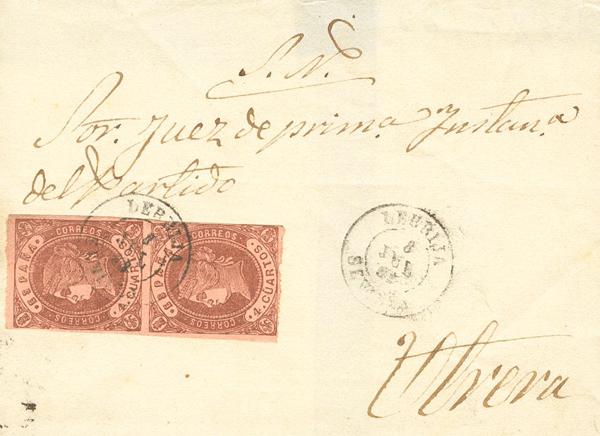 S. N.
Sor. Juez de prima. Instana.
del Partido
CORREOS
Bª PARA
4 CUARTOS
CORREOS
CORREOS
Bª PARA
4 CUARTOS
CORREOS
LEBRIJA
LEBRIJA
8
JUL
Utrera